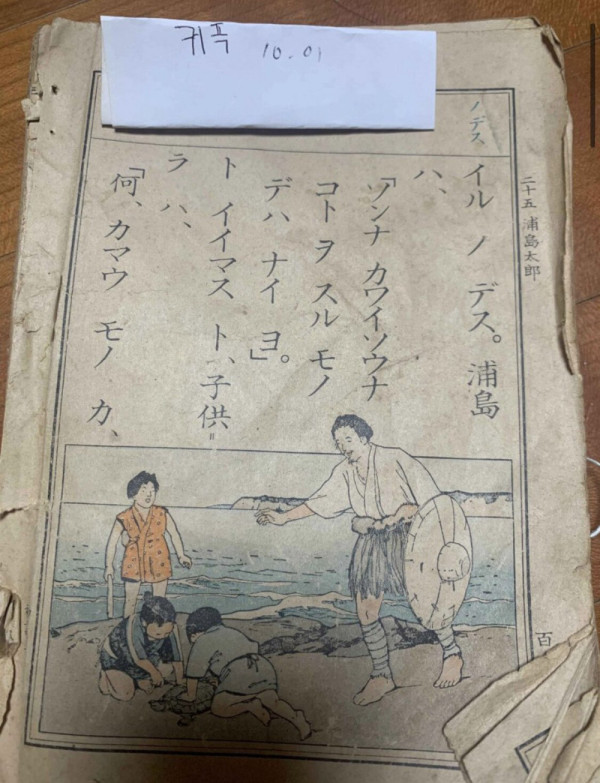 커픽 10.01
ノデス
二十五 浦島太郎
イル ノ デス。浦島
ハ、
「ソンナ カワイソウナ
コト ヲ スル モノ
デハ ナイ ヨ」。
ト イイマス ト、子供
ラ ハ、
「何、カマウ モノ カ、
百